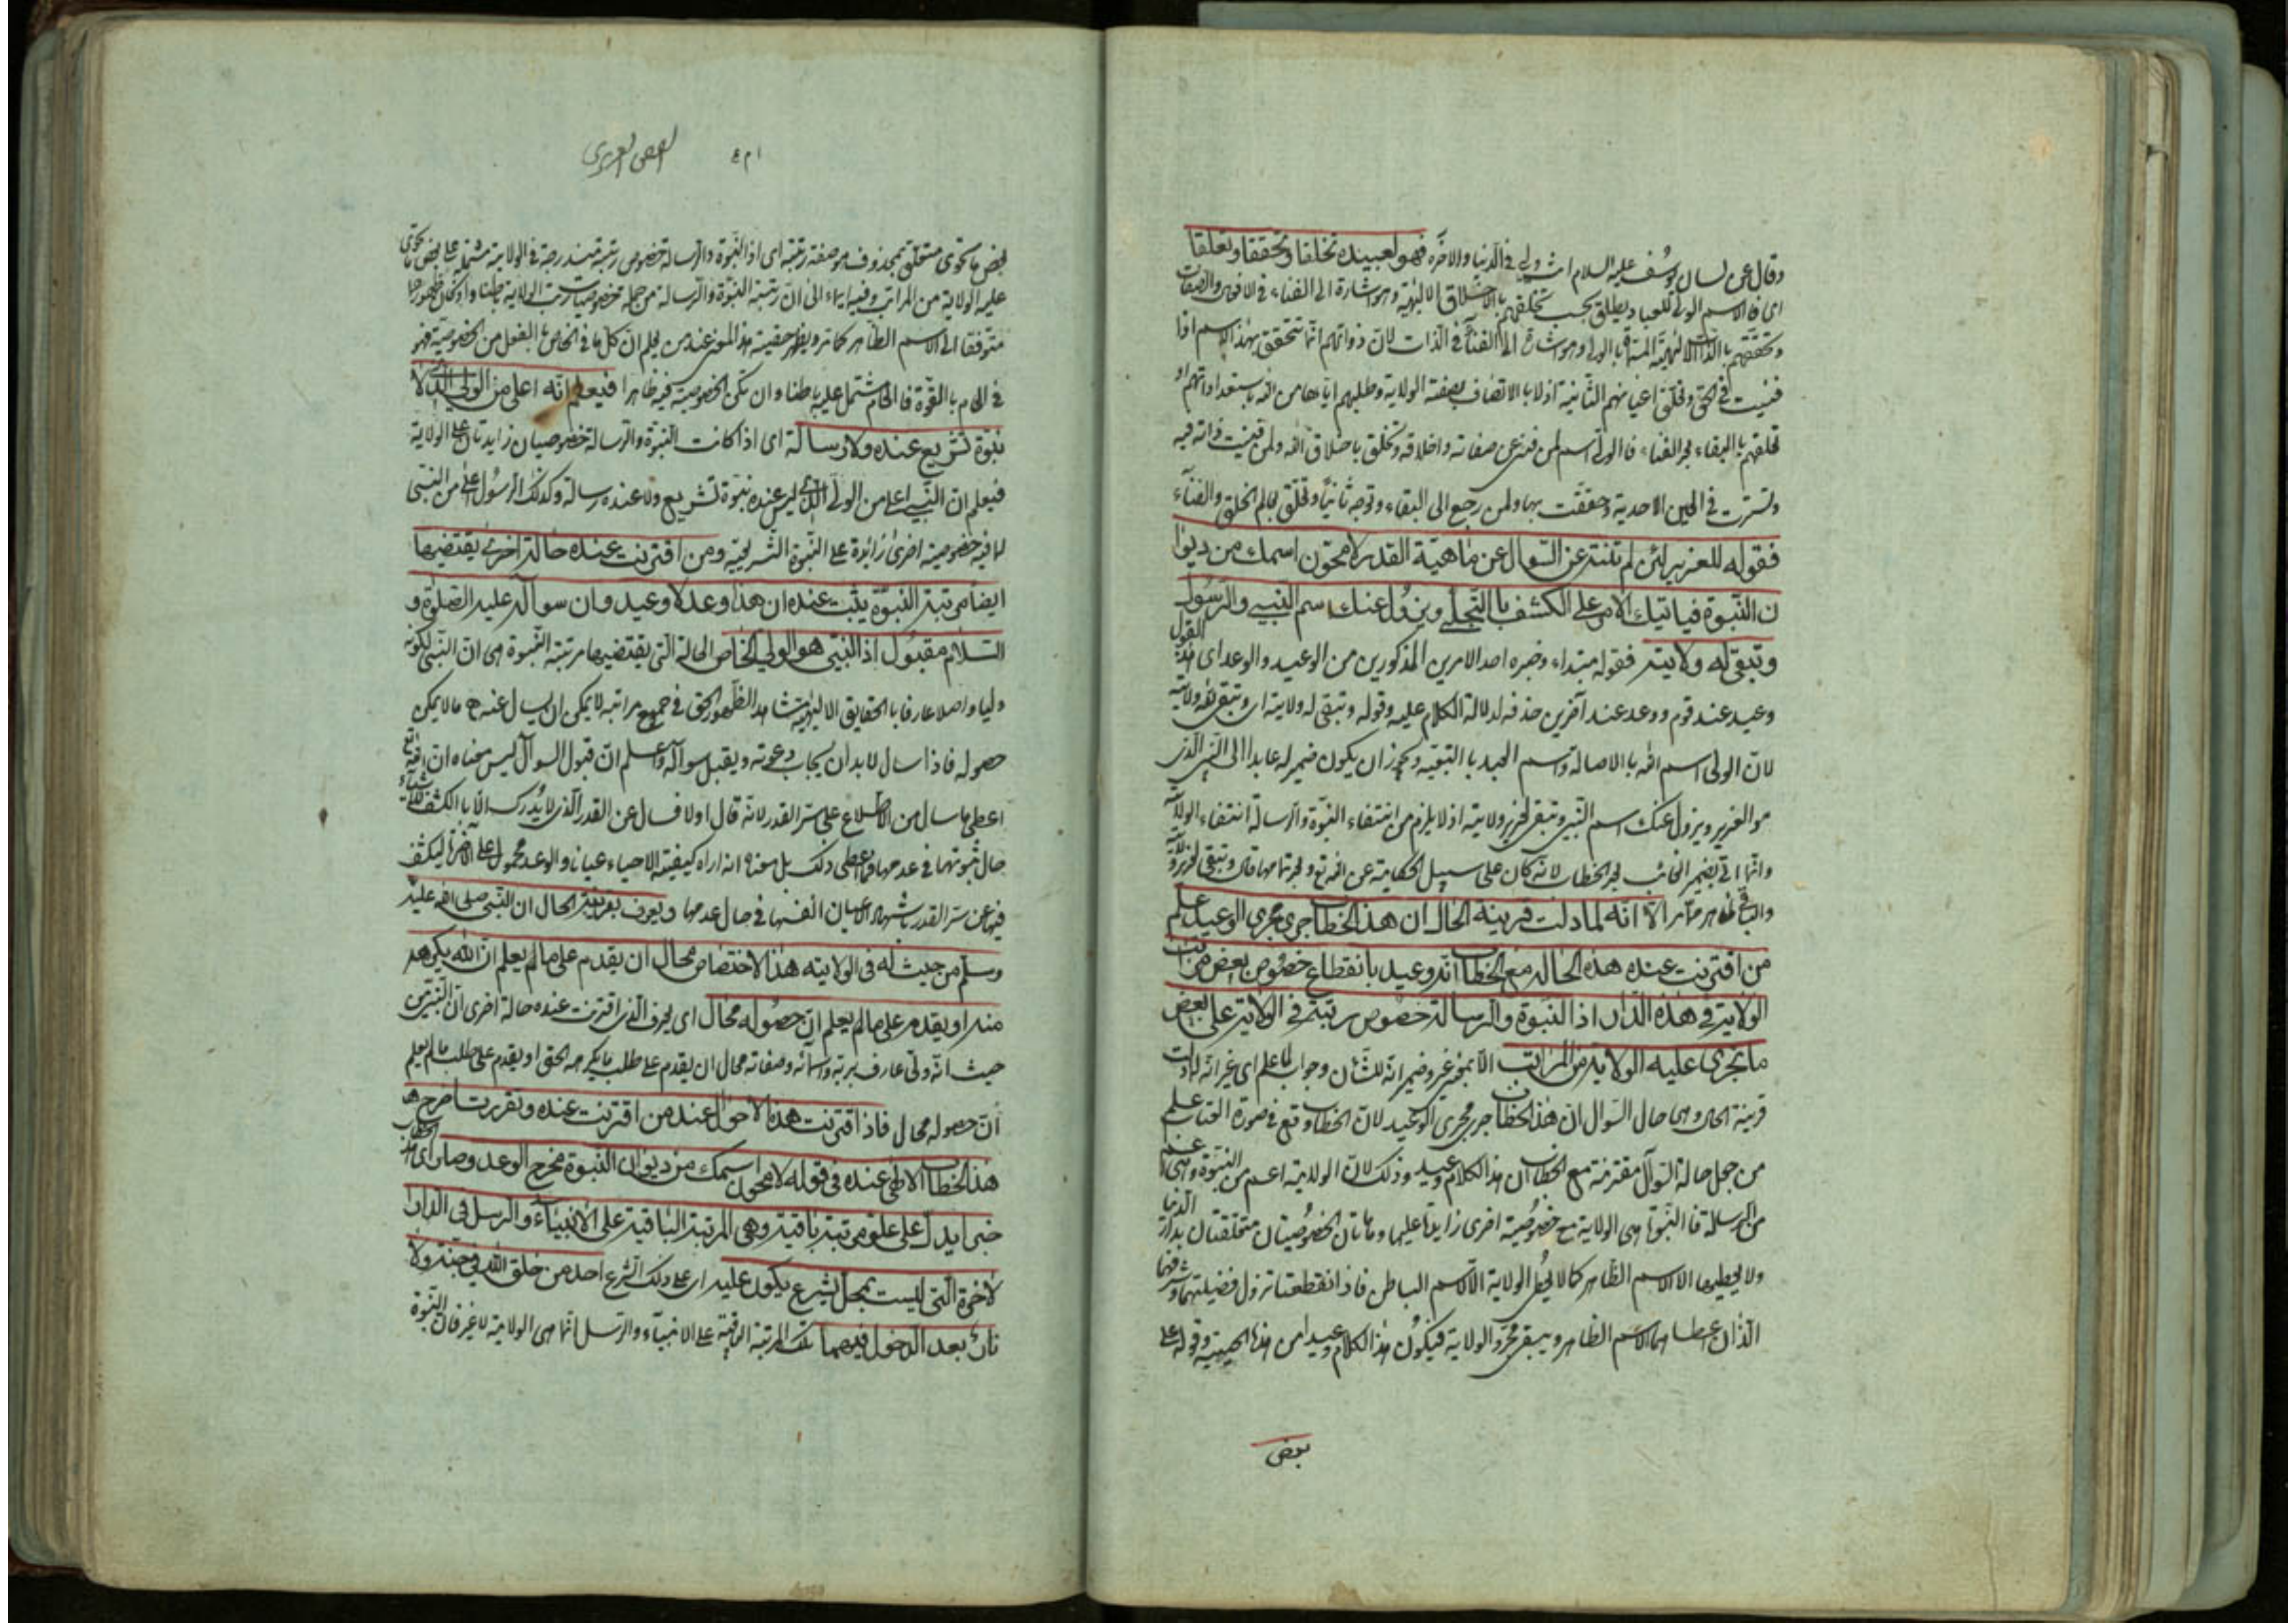 وقال عن لسان يوسف عليه السلام انت ولي في الدنيا والاخرة فهو لعبيده تخلقا وتحققا وتعلقا
اى فالاسم الولي للعباد يطلق بحسب تخلقهم بالاخلاق الالهية وهو اشارة الى الفناء في الافعال والصفات
وتحققهم بالذات الالهية المسماة بالولي وهو اشارة الى الفناء في الذات لان ذواتهم انما تتحقق بهذا الاسم اذا
فنيت في الحق وتعلق اعيانهم الثانية ازلا بالاتصاف بصفة الولاية وطلبهم اياها من الله باستعداداتهم او
تعلقهم بالبقاء بعد الفناء فالولي اسم لمن فنى عن صفاته واخلاقه وتخلق باخلاق الله ولمن فنيت ذاته فيه
وتسترت في العين الاحدية وتحققت بها ولمن رجع الى البقاء وتوجه ثانيا وتعلق بعالم الخلق والفناء
فقوله للعزير لئن لم تنته عن السوال عن ماهية القدر لامحون اسمك من ديوا
ن النبوة فياتيك الامر على الكشف بالتجلي ويزول عنك اسم النبي والرسول
وتبقى له ولايته فقوله مبتداء وخبره احد الامرين المذكورين من الوعيد والوعد اى هذا القول
وعيد عند قوم ووعد عند آخرين حذفه لدلالة الكلام عليه وقوله وتبقى له ولايته اى وتبقى لله ولايته
لان الولي اسم الله بالاصالة واسم العبد بالتبعية ويجوز ان يكون ضمير له عايدا الى النبي الذى
هو العزير ويزول عنك اسم النبي وتبقى لعزير ولايته اذ لا يلزم من انتفاء النبوة والرسالة انتفاء الولاية
وانما اتى بضمير الغائب بعد الخطاب لانه كان على سبيل الحكاية عن الله تع وبعد تمامها قال وتبقى لعزير ولايته
والباقي ظاهر مما مر الا انه لما دلت قرينة الحال ان هذا الخطاب جرى مجرى الوعيد علم
من اقترنت عنده هذه الحالة مع الخطاب انه وعيد بانقطاع خصوص بعض مراتب
الولاية في هذه الدار اذ النبوة والرسالة خصوص رتبة في الولاية على بعض
ما تجرى عليه الولاية من المراتب الا بمعنى غير وضمير انه للشان وجواب لما علم اى غير انه لما دلت
قرينة الحال وهى حال السوال ان هذا الخطاب جرى مجرى الوعيد لان الخطاب وقع في صورة العتاب علم
من جعل حالة السوال مقترنة مع الخطاب ان هذا الكلام وعيد وذلك لان الولاية اعم من النبوة وهى اعم
من الرسالة فالنبوة هى الولاية مع خصوصية اخرى زايدة عليها وهاتان الخصوصيتان متعلقتان بدار الدنيا
ولا يعطيهما الا الاسم الظاهر كما لا يعطى الولاية الا الاسم الباطن فاذا انقطعتا تزول فضيلتهما وشرفهما
الذان اعطاهما الاسم الظاهر ويبقى مجرد الولاية فيكون هذا الكلام وعيدا من هذه الحيثية وقوله على
بعض
الفص العزيرى
بعض ما تحوى متعلق بمحذوف هو صفة رتبة اى اذ النبوة والرسالة خصوص رتبة مندرجة في الولاية مشتملة على بعض ما تحوى
عليه الولاية من المراتب وفيه ايماء الى ان رتبة النبوة والرسالة من جملة خصوصيات رتب الولاية باطنا وان كان ظهورها
متوقفا الى الاسم الظاهر كما مر ويظهر حقيقة هذا المعنى عند من يعلم ان كل ما في الخاص بالفعل من الخصوصية فهو
في العام بالقوة فالعام مشتمل عليه باطنا وان لم تكن الخصوصية فيه ظاهرا فيعلم انه اعلى من الولي الذى لا
نبوة تشريع عنده ولا رسالة اى اذا كانت النبوة والرسالة خصوصيتان زايدتان على الولاية
فيعلم ان النبي اعلى من الولي الذى ليس عنده نبوة تشريع ولا عنده رسالة وكذلك الرسول اعلى من النبي
لما فيه خصوصية اخرى زائدة على النبوة التشريعية ومن اقترنت عنده حالة اخرى يقتضيها
ايضا مرتبة النبوة يثبت عنده ان هذا وعد لا وعيد وان سواله عليه الصلوة و
السلام مقبول اذ النبي هو الولي الخاص الحالة التي يقتضيها مرتبة النبوة هى ان النبي لكونه
وليا واصلا عارفا بالحقايق الالهية مشاهدا لظهور الحق في جميع مراتبه لا يمكن ان يسال عنه ما لا يمكن
حصوله فاذا سال لا بد ان يجاب دعوته ويقبل سواله واعلم ان قبول السوال ليس معناه ان الله تع
اعطى ما سال من الاطلاع على سر القدر لانه قال اولا فسال عن القدر الذى لا يدرك الا بالكشف للاشياء
حال ثبوتها في عدمها فما اعطى ذلك بل معناه انه اراه كيفية الاحياء عيانا والوعد محمول على الآخرة ليكشف
فيها عن سر القدر بشهود الاعيان انفسها في حال عدمها ويعرف بقرينة الحال ان النبي صلى الله عليه
وسلم من حيث له في الولاية هذا الاختصاص محال ان يقدم على ما لم يعلم ان الله يكرهه
منه او يقدم على ما لم يعلم ان حصوله محال اى يعرف الذى اقترنت عنده حالة اخرى ان النبي من
حيث انه ولي عارف بربه واسمائه وصفاته محال ان يقدم على طلب ما يكرهه الحق او يقدم على طلب ما لم يعلم
ان حصوله محال فاذا اقترنت هذه الاحوال عند من اقترنت عنده وتقررت اخرج
هذا الخطاب الالهي عنده في قوله لامحون اسمك من ديوان النبوة مخرج الوعد وصار اى هذا الخطاب
خبرا يدل على علو مرتبة باقية وهى المرتبة الباقية على الانبياء والرسل في الدار ا
لاخرة التي ليست بمحل لشرع يكون عليه اى على ذلك الشرع احد من خلق الله في جنة ولا
نار بعد الدخول فيهما تلك المرتبة الباقية على الانبياء والرسل انما هى الولاية لا غير فان النبوة